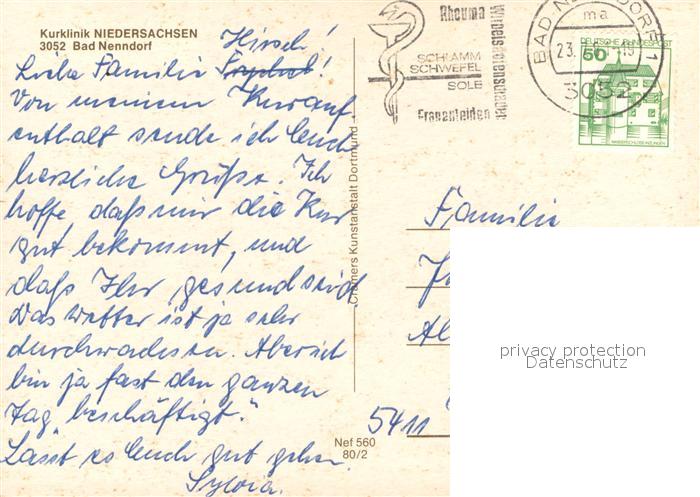 Kurklinik NIEDERSACHSEN
3052 Bad Nenndorf
Hirsch!
Liebe Familie
Von meinem Kurauf
enthalt sende ich Euch
herzliche Grüße. Ich
hoffe, daß mir die Kur
gut bekommt, und
daß Ihr gesund seid
Das Wetter ist ja sehr
durchwachsen. Aber ich
bin ja fast den ganzen
Tag "beschäftigt."
Lasst es Euch gut gehen.
Sylvia.
Cramers Kunstanstalt Dortmund
Nef 560
80/2
Rheuma
Wirbelsäulenschäden
SCHLAMM
SCHWEFEL
SOLE
Frauenleiden
BAD NENNDORF 1
23.
ma
3052
DEUTSCHE BUNDESPOST
50
WASSERSCHLOSS INZLINGEN
Familie
5411
privacy protection
Datenschutz